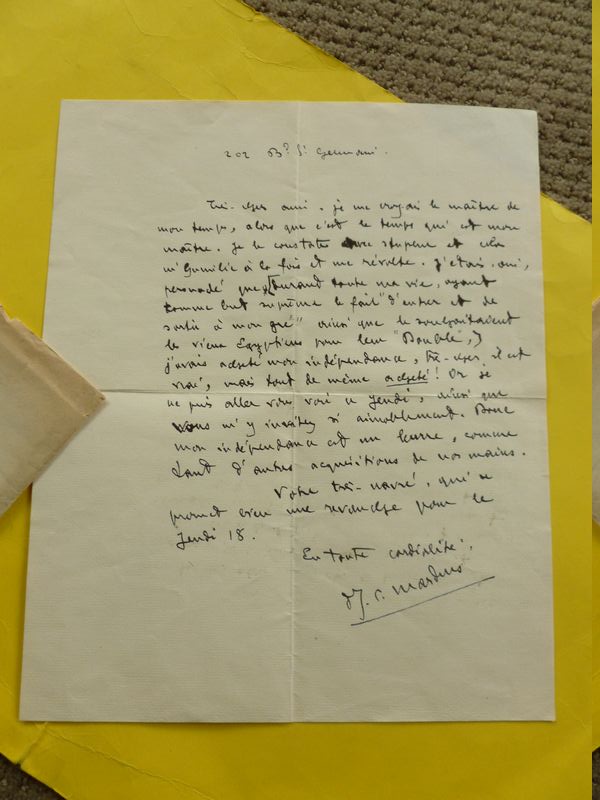 202 Bd St Germain.
Très-cher ami. je me croyais le maître de
mon temps, alors que c'est le temps qui est mon
maître. Je le constate avec stupeur et cela
m'humilie à la fois et me révolte. J'étais, oui,
persuadé que, (durant toute ma vie, ayant
comme but suprême le fait "d'entrer et de
sortir à mon gré" ainsi que le souhaitaient
les vieux Egyptiens pour leur "Double",)
j'avais acheté mon indépendance, très-cher, il est
vrai, mais tout de même acheté! Or je
ne puis aller vous voir ce jeudi, ainsi que
vous m'y invitez si aimablement. Donc
mon indépendance est un leurre, comme
tant d'autres acquisitions de nos mains.
Votre très-navré, qui se
promet bien une revanche pour le
Jeudi 18.
En toute cordialité.
J. C. Mardrus